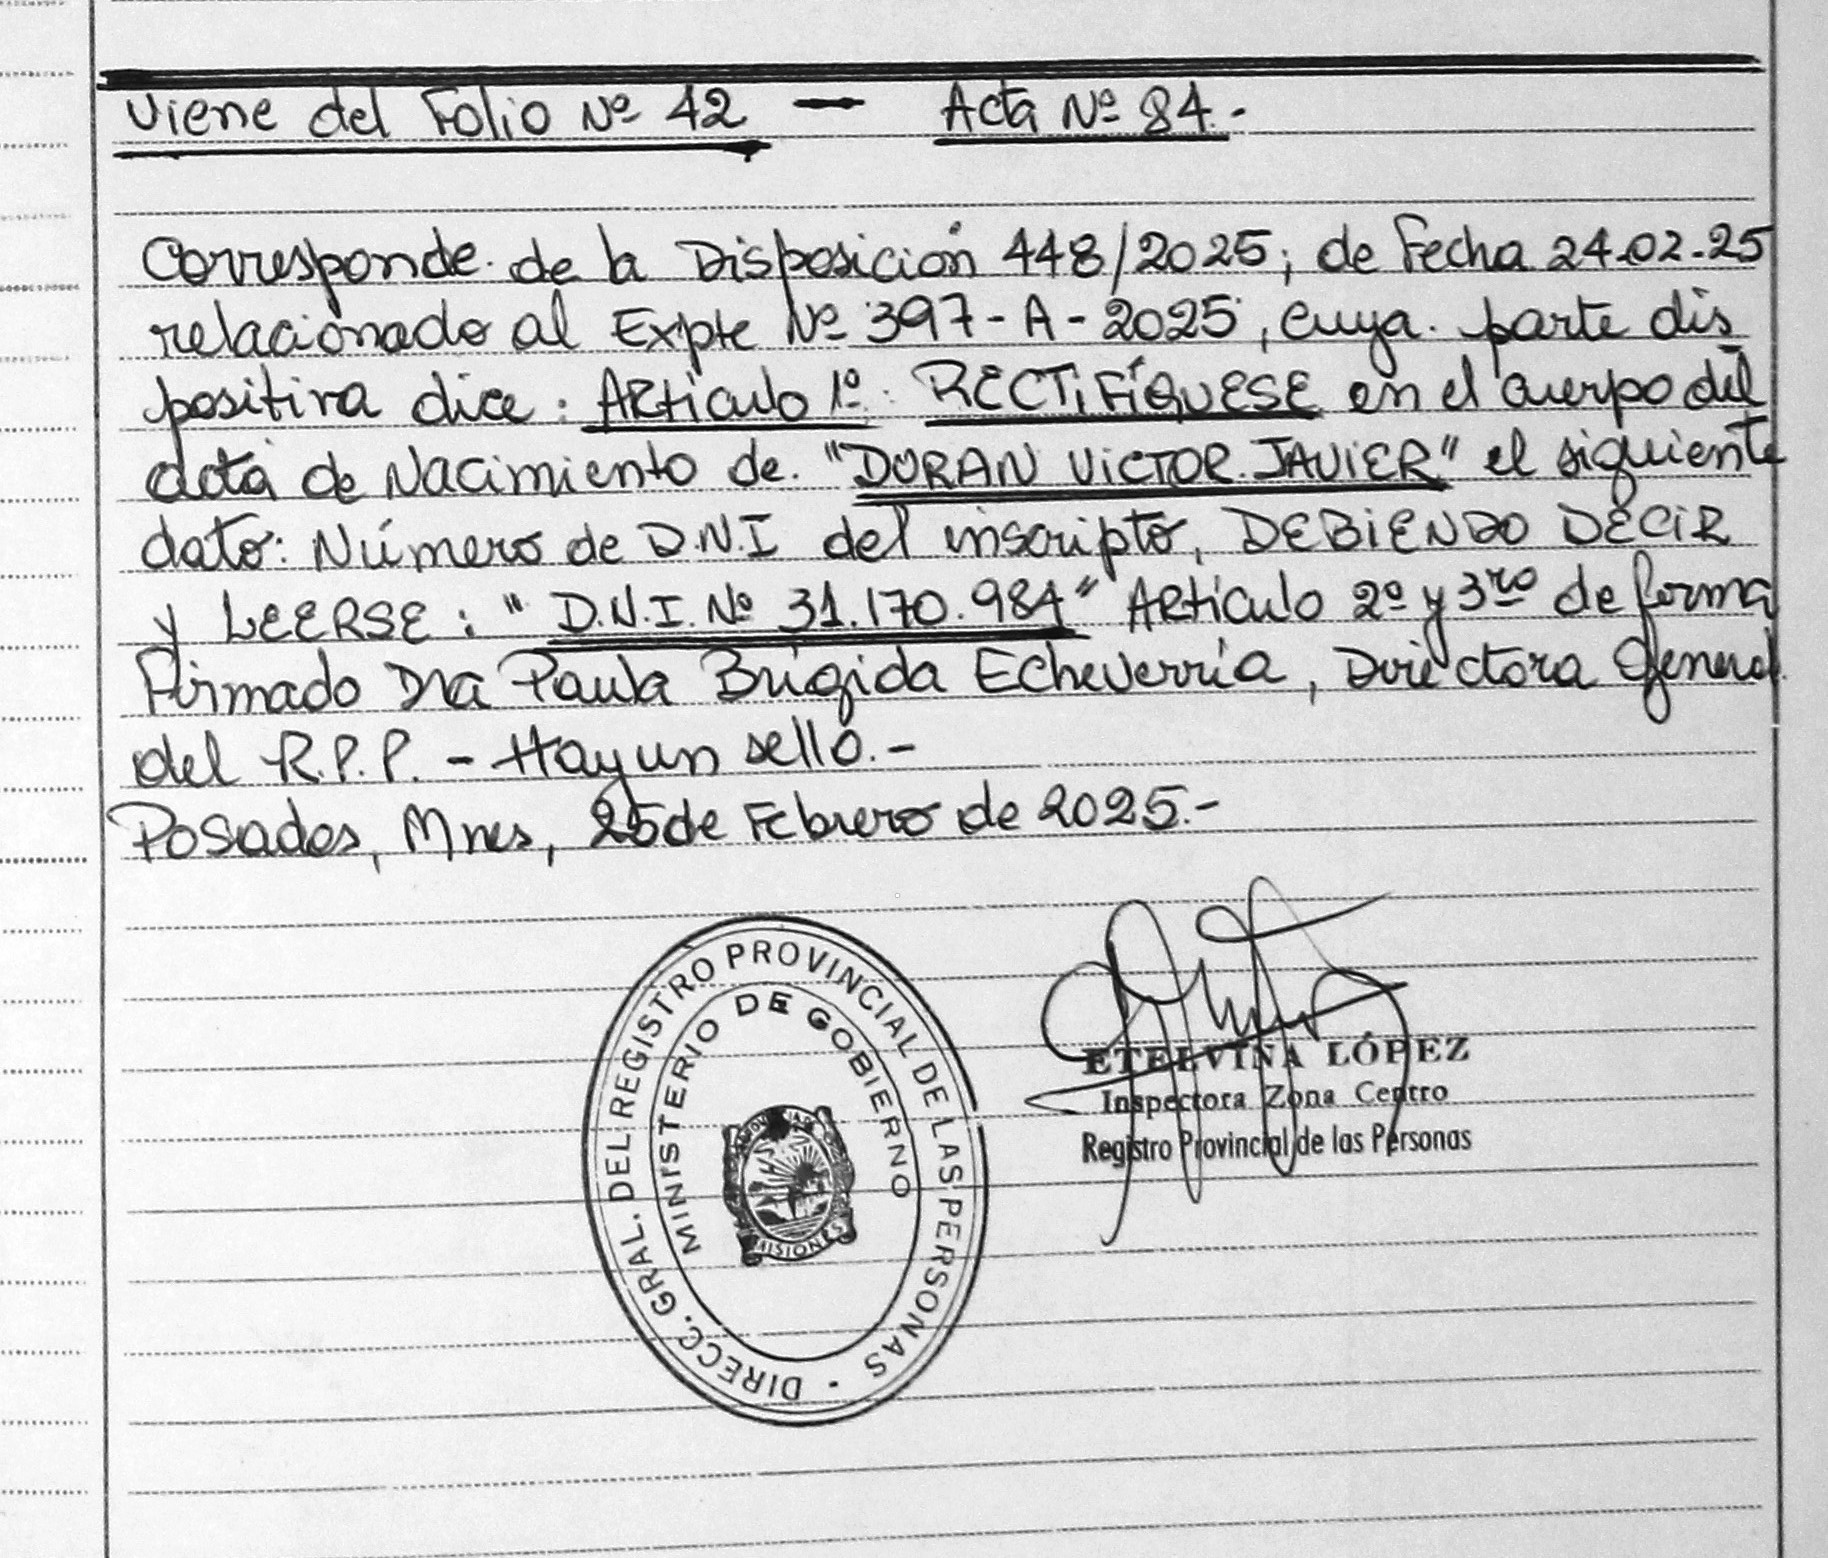 Viene del Folio Nº 42 — Acta Nº 84.-
Corresponde de la Disposición 448/2025; de Fecha 24.02.25
relacionado al Expte Nº 397-A-2025, cuya parte dis
positiva dice: Artículo 1º: RECTIFÍQUESE en el cuerpo del
acta de Nacimiento de "DORAN VICTOR JAVIER" el siguiente
dato: Número de D.N.I del inscripto, DEBIENDO DECIR
y LEERSE: "D.N.I. Nº 31.170.984" Artículo 2º y 3ro de forma
Firmado Dra Paula Brígida Echeverría, Directora General
del R.P.P. - Hay un sello.-
Posadas, Mnes, 25 de Febrero de 2025.-
DIRECC. GRAL. DEL REGISTRO PROVINCIAL DE LAS PERSONAS
MINISTERIO DE GOBIERNO
MISIONES
ETELVINA LÓPEZ
Inspectora Zona Centro
Registro Provincial de las Personas